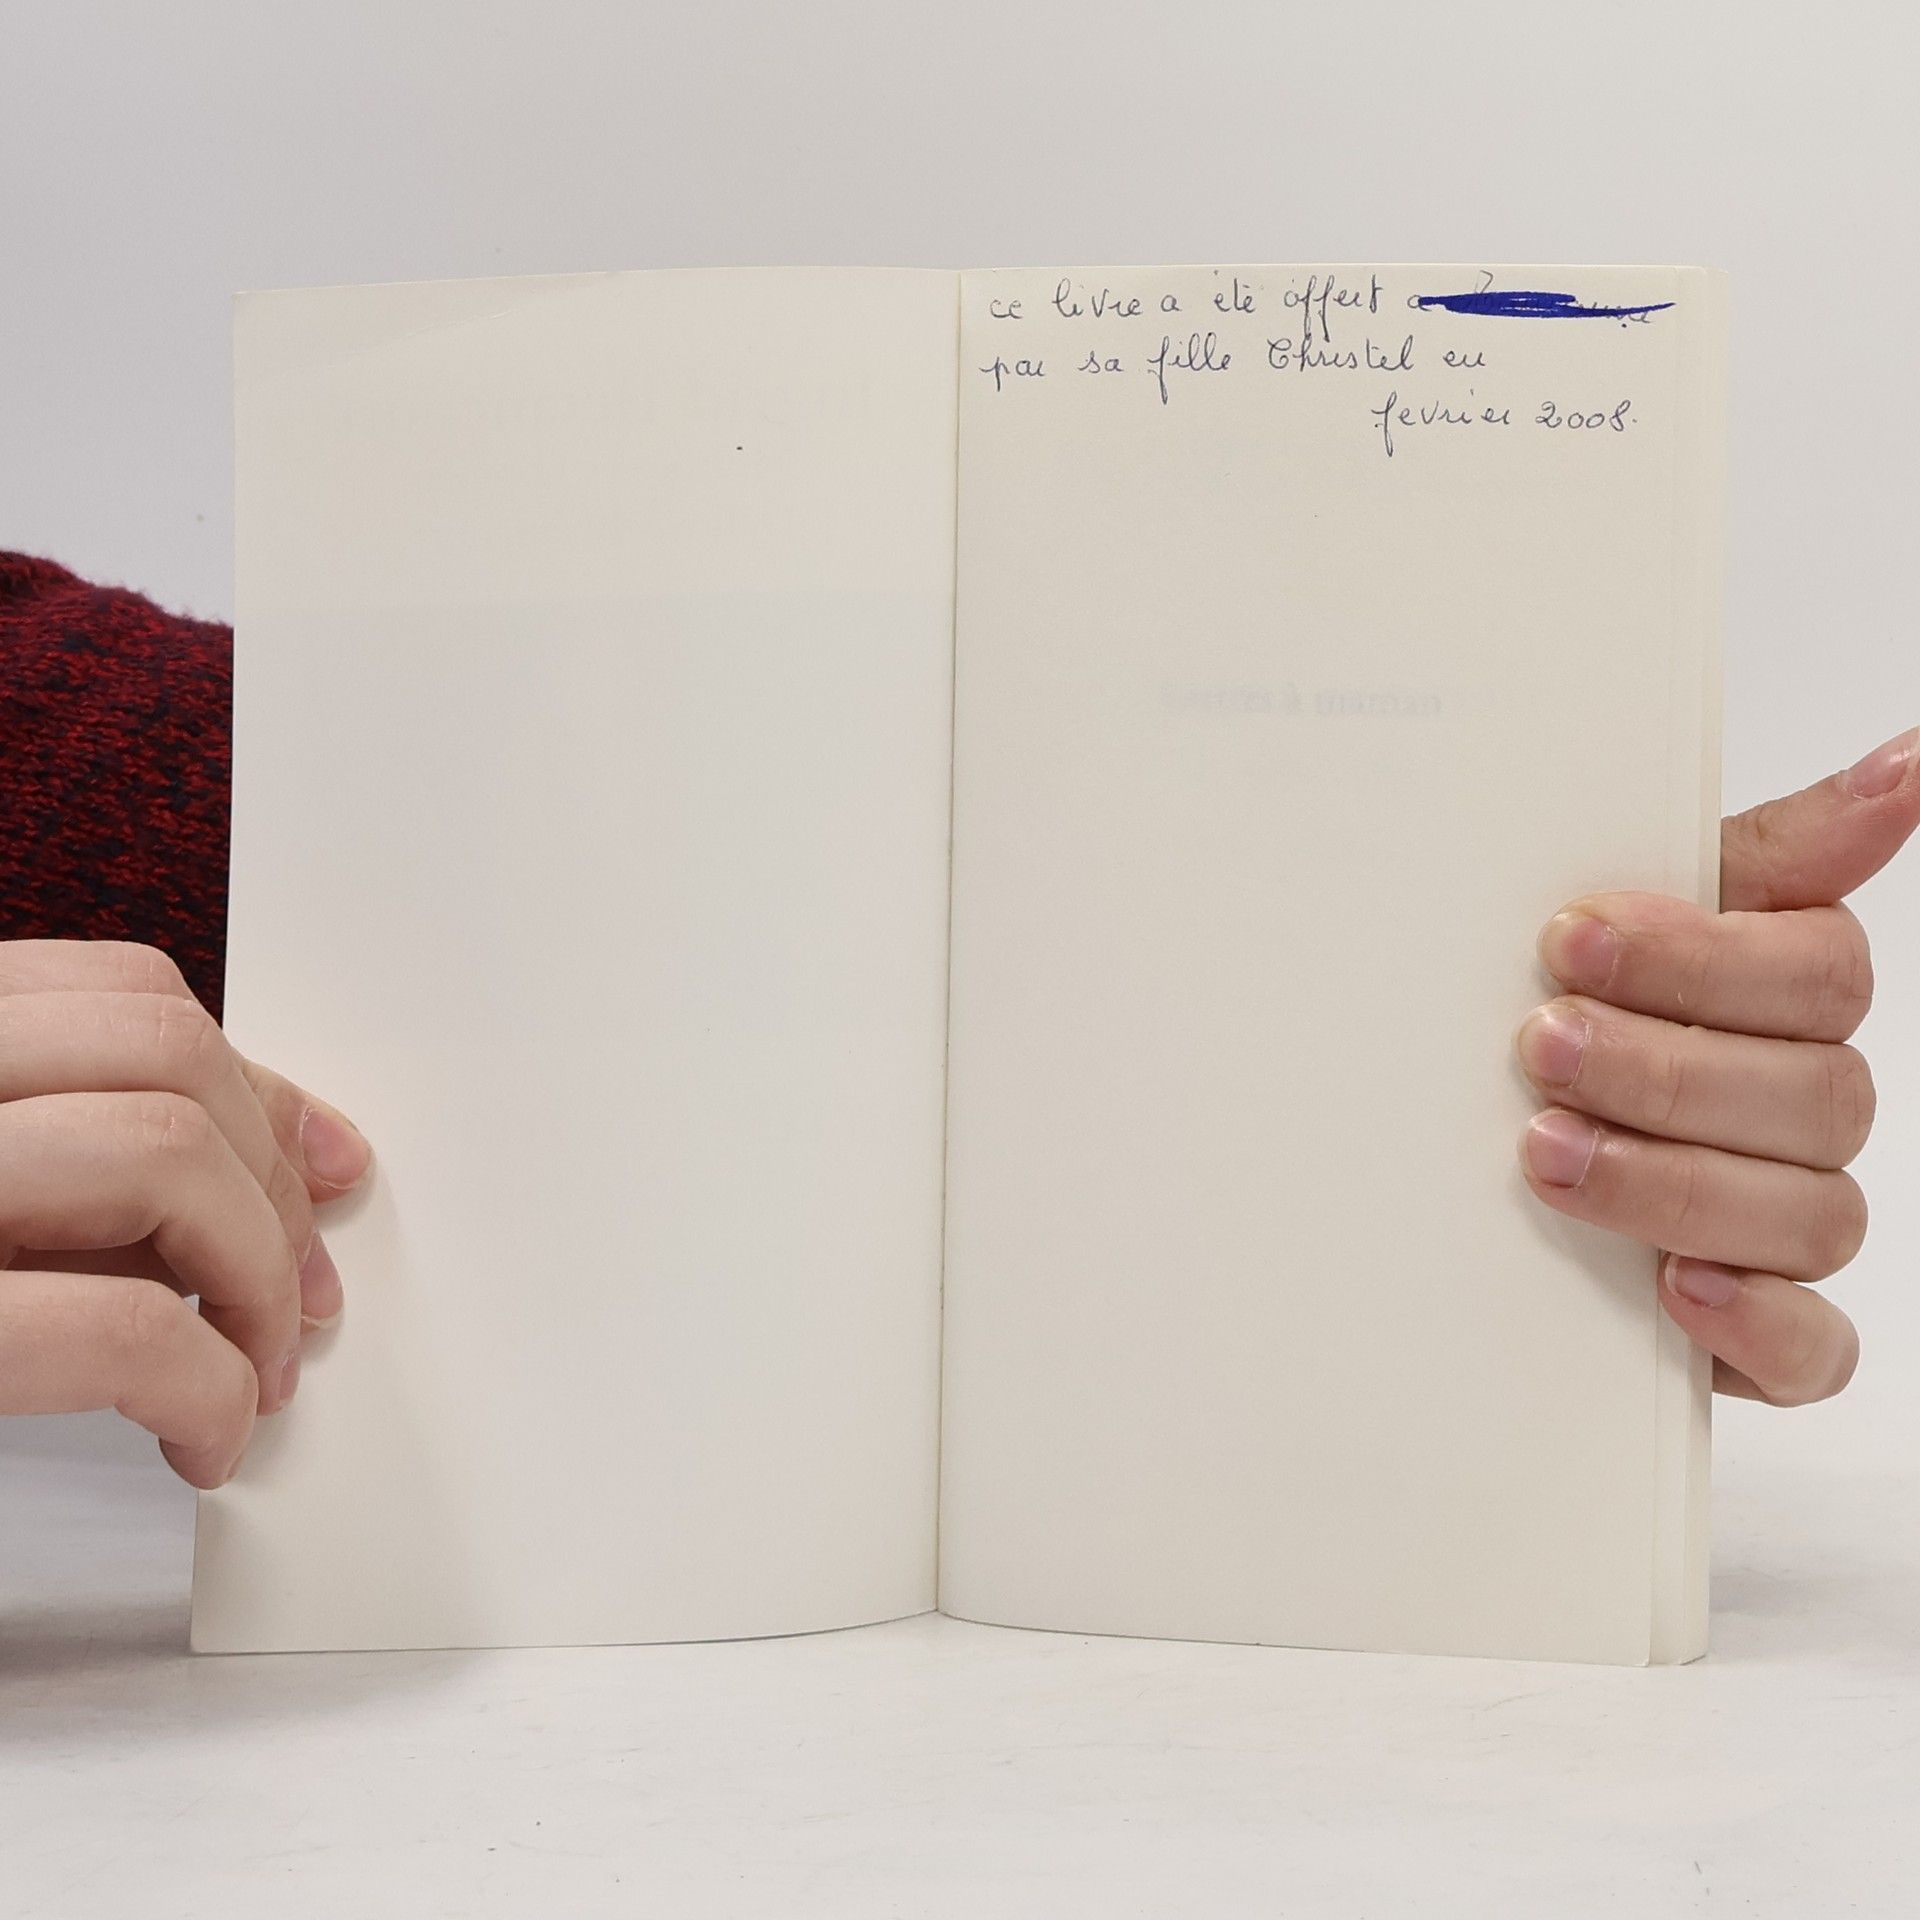 ce livre a été offert a
par sa fille Christel en
fevrier 2008.
à maman